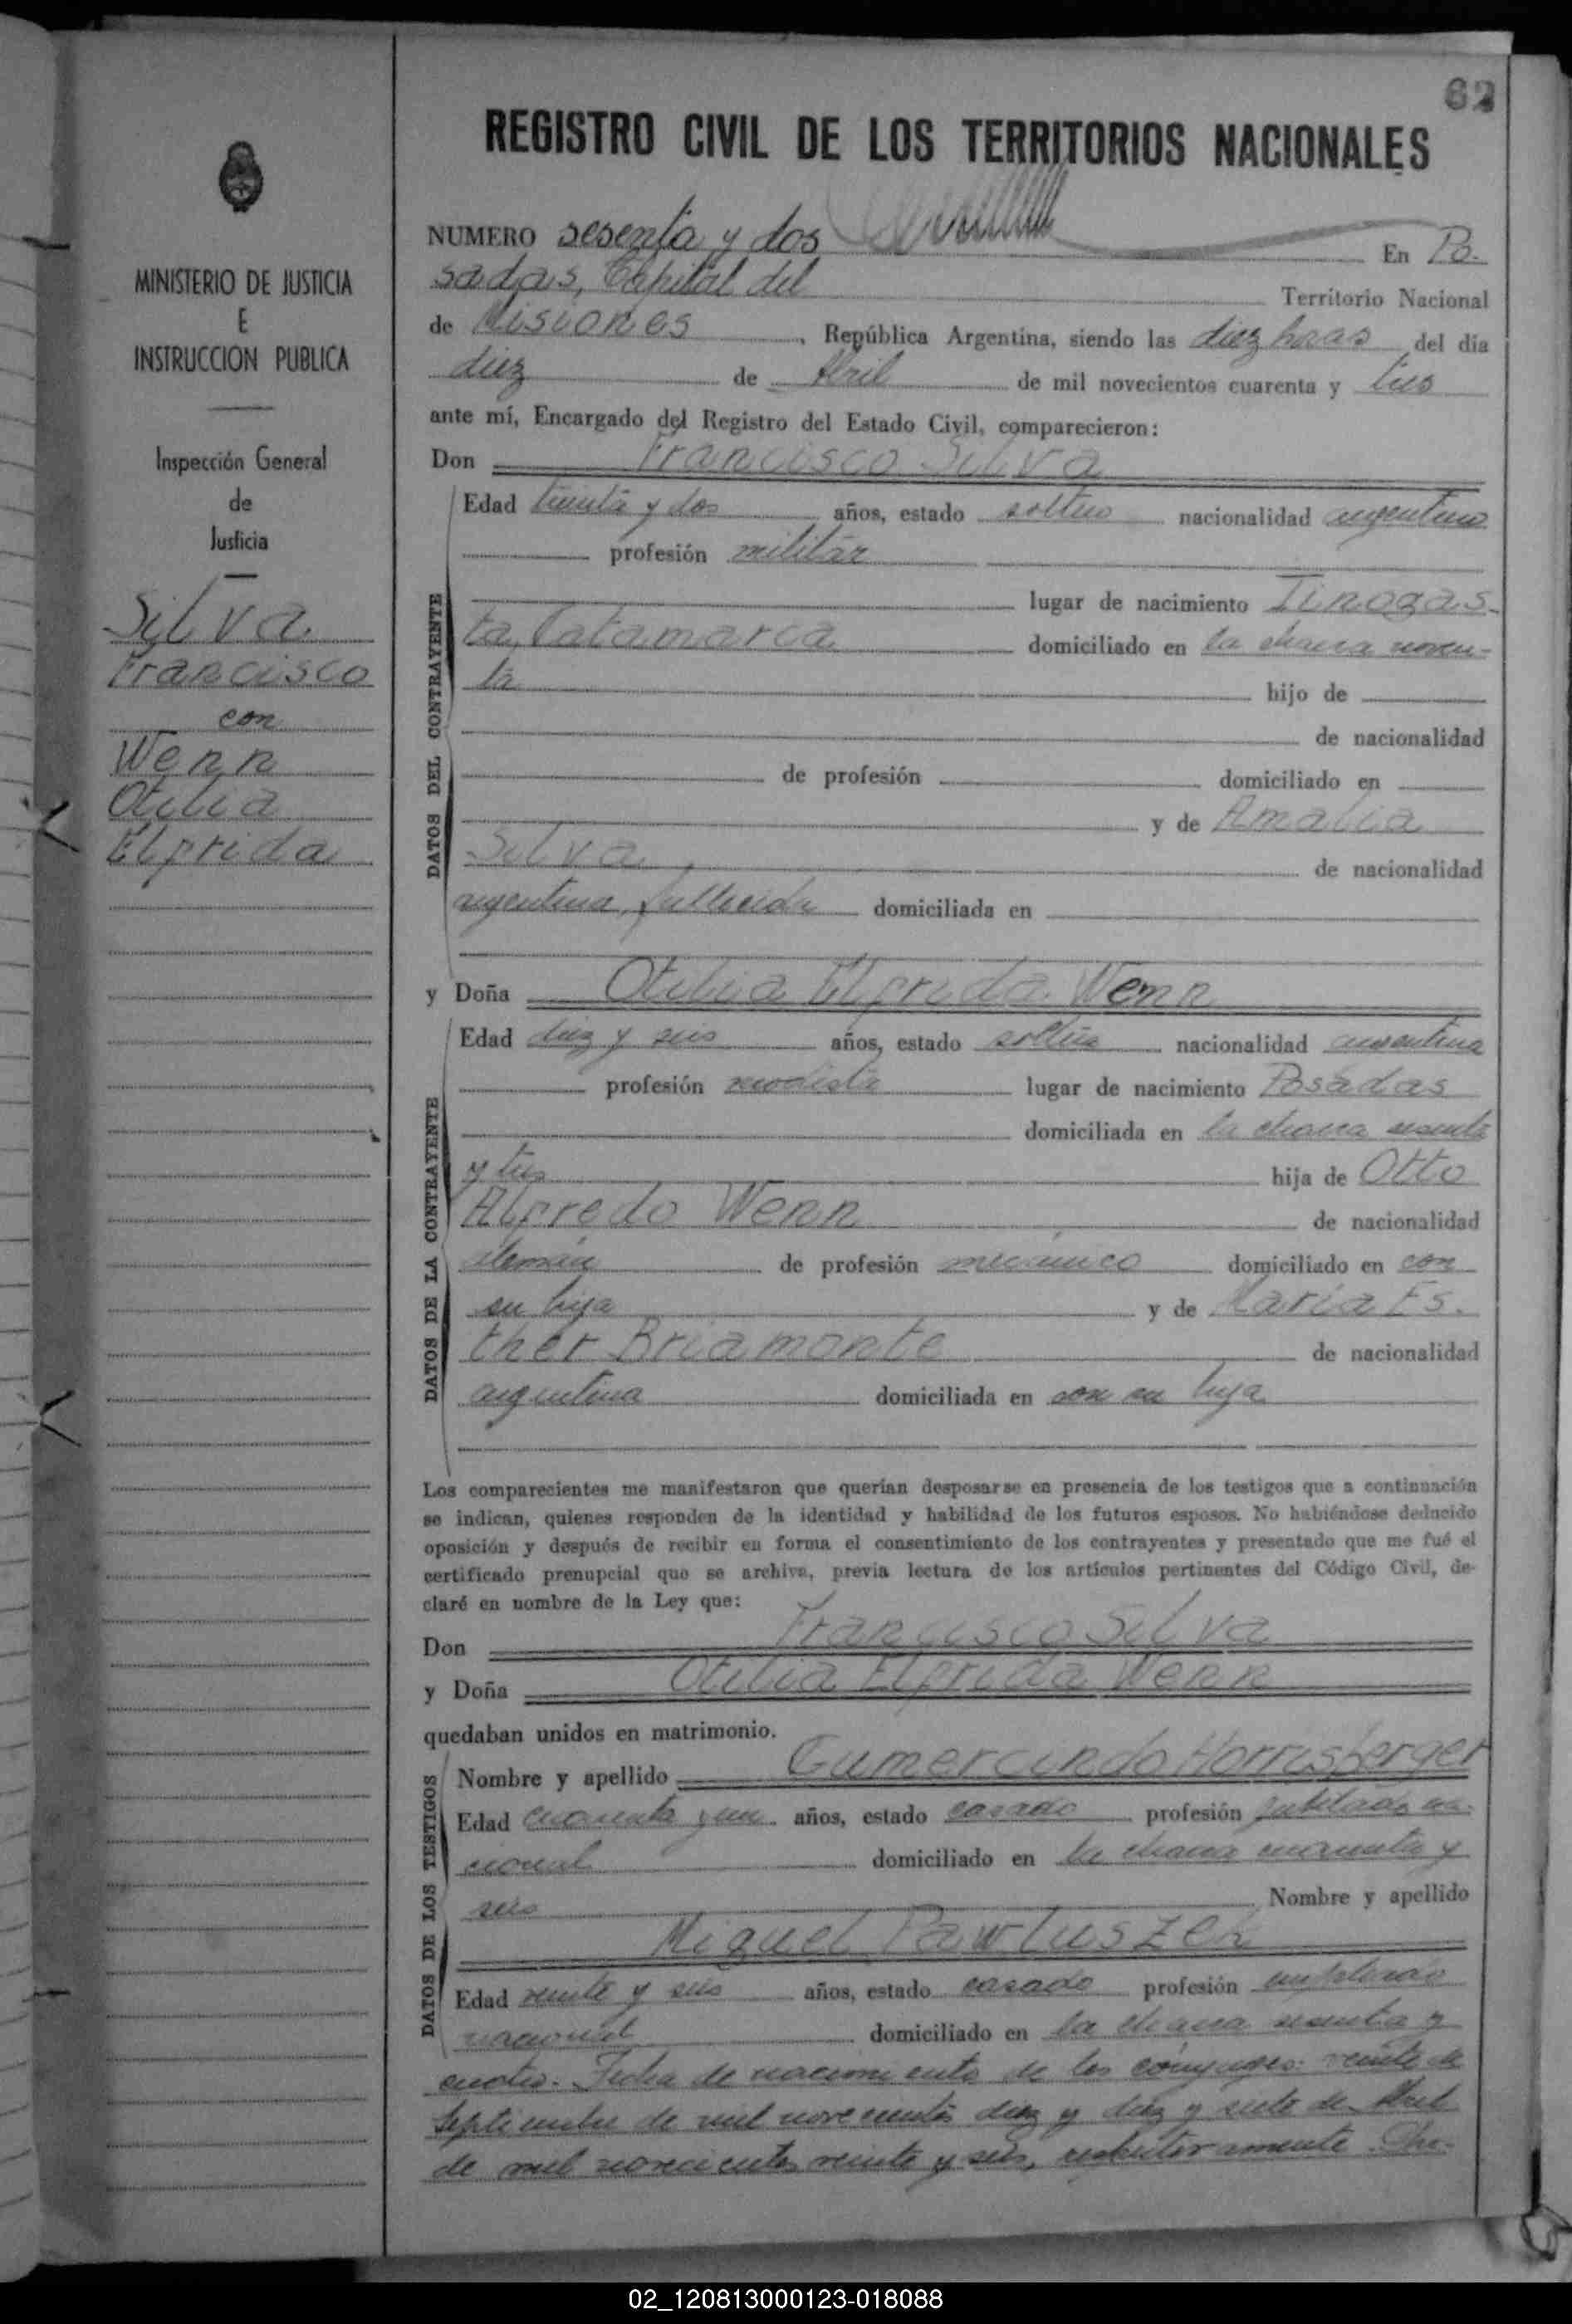 62
REGISTRO CIVIL DE LOS TERRITORIOS NACIONALES
MINISTERIO DE JUSTICIA
E
INSTRUCCION PUBLICA
Inspección General
de
Justicia
Silva
Francisco
con
Wenn
Otilia
Elfrida
NUMERO sesenta y dos En Po-
sadas, Capital del Territorio Nacional
de Misiones, República Argentina, siendo las diez horas del día
diez de Abril de mil novecientos cuarenta y tres
ante mí, Encargado del Registro del Estado Civil, comparecieron:
Don Francisco Silva
DATOS DEL CONTRAYENTE
Edad treinta y dos años, estado soltero nacionalidad argentino
profesión militar
lugar de nacimiento Tinogas-
ta, Catamarca domiciliado en la chacra noven-
ta hijo de
de nacionalidad
de profesión domiciliado en
y de Amalia
Silva de nacionalidad
argentina, fallecida domiciliada en
y Doña Otilia Elfrida Wenn
DATOS DE LA CONTRAYENTE
Edad diez y seis años, estado soltera nacionalidad argentina
profesión modista lugar de nacimiento Posadas
domiciliada en la chacra sesenta
y tres hija de Otto
Alfredo Wenn de nacionalidad
alemán de profesión mecánico domiciliado en con
su hija y de María Es-
ther Briamonte de nacionalidad
argentina domiciliada en con su hija
Los comparecientes me manifestaron que querían desposarse en presencia de los testigos que a continuación
se indican, quienes responden de la identidad y habilidad de los futuros esposos. No habiéndose deducido
oposición y después de recibir en forma el consentimiento de los contrayentes y presentado que me fué el
certificado prenupcial que se archiva, previa lectura de los artículos pertinentes del Código Civil, de-
claré en nombre de la Ley que:
Don Francisco Silva
y Doña Otilia Elfrida Wenn
quedaban unidos en matrimonio.
DATOS DE LOS TESTIGOS
Nombre y apellido Gumercindo Horrisberger
Edad cuarenta y un años, estado casado profesión jubilado na-
cional domiciliado en la chacra cuarenta y
seis Nombre y apellido
Miguel Pawluszek
Edad veinte y seis años, estado casado profesión empleado
nacional domiciliado en la chacra sesenta y
cuatro. Fecha de nacimiento de los cónyuges: veinte de
Septiembre de mil novecientos diez y diez y siete de Abril
de mil novecientos veinte y seis, respectivamente.
02_120813000123-018088